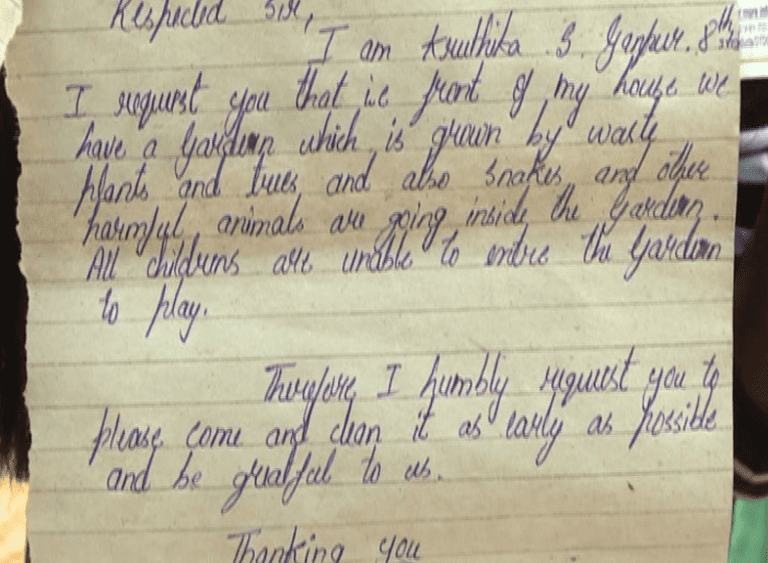 Respected Sir,
I am Kruthika .S. Ganpur. 8th
I request you that i.e front of my house we
have a Garden which is grown by waste
plants and trees and also snakes and other
harmful animals are going inside the Garden.
All childrens are unable to entre the Garden
to play.
Therefore I humbly request you to
please come and clean it as early as possible
and be gratful to us.
Thanking you